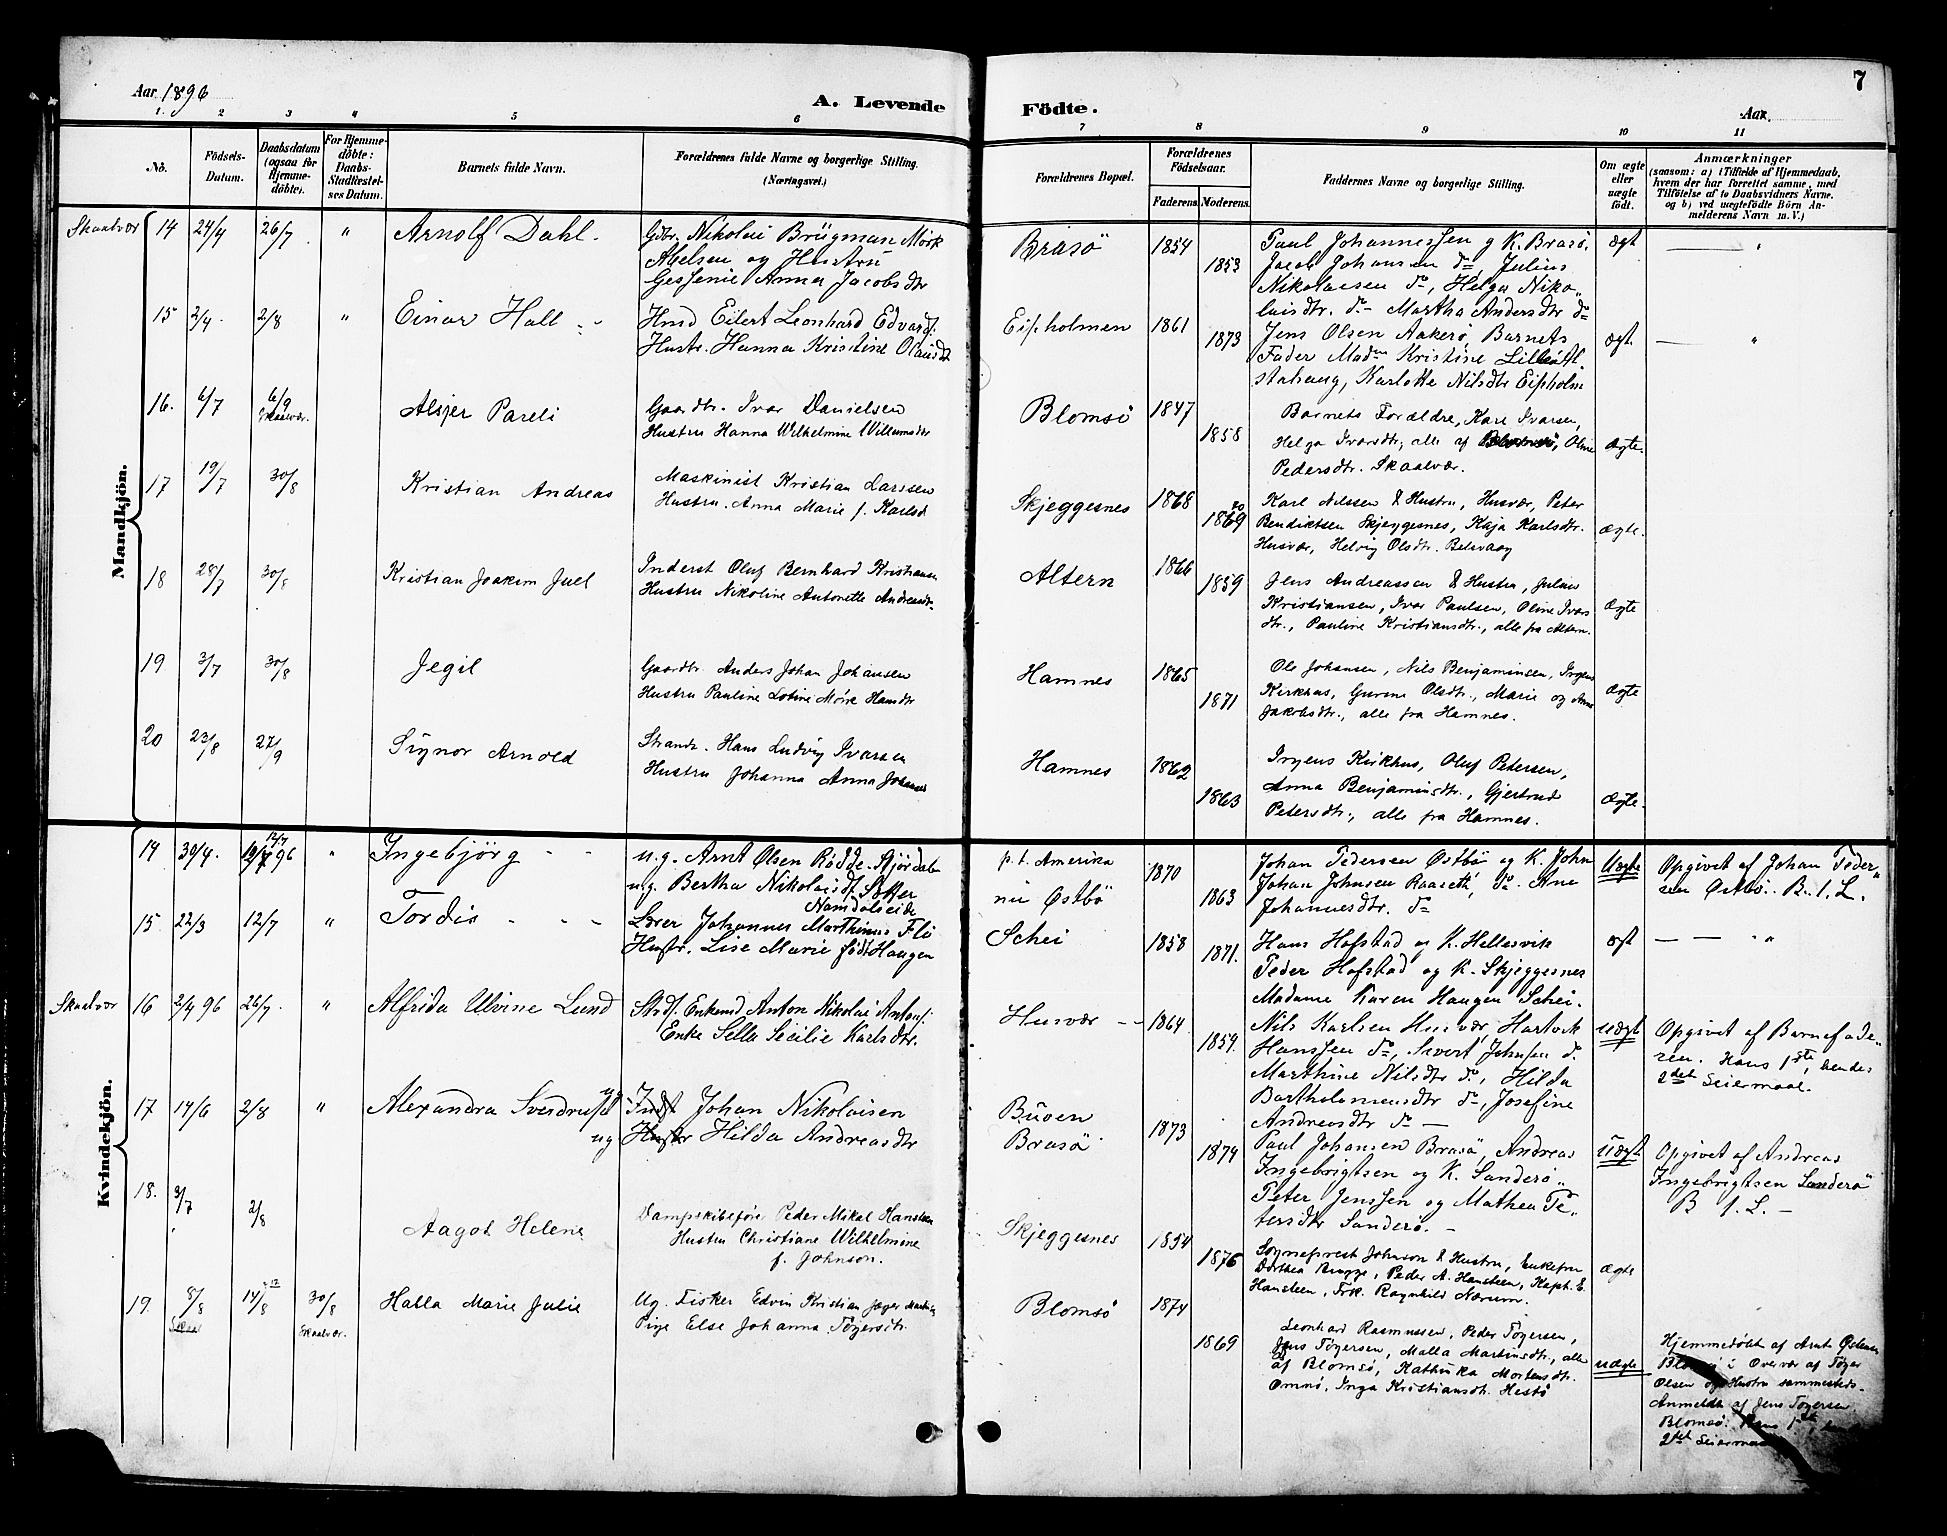 Aar 1896
A. Levende Födte.
Aar
7
1. 2 3 4 5 6 7 8 9 10 11
No.
Födsels-Datum.
Daabsdatum (ogsaa for Hjemme-döbte).
For Hjemme-döbte: Daabs-Stadfæstel-ses Datum.
Barnets fulde Navn.
Forældrenes fulde Navne og borgerlige Stilling. (Næringsvei.)
Forældrenes Bopæl.
Forældrenes Födselsaar.
Faderens. Moderens.
Faddernes Navne og borgerlige Stilling.
Om ægte eller uægte födt.
Anmærkninger
(saasom: a) i Tilfælde af Hjemmedaab, hvem der har forrettet samme, med Tilföielse af to Daabsvidners Navne. og b) ved uægtefödte Börn An-melderens Navn m. V.)
Mandkjön.
Skaalvær 14 24/4 26/7 " Arnolf Dahl.
Gbr. Nikolai Brügman Mörk
Abelsen og Hustru
Gessenie Anna Jacobsdtr
Brasö 1854 1853
Paul Johannessen g K. Brasö,
Jacob Johansen do, Julius
Nikolaisen do, Helga Niko„
laisdtr. do Martha Andersdtr do
ægt
15 2/4. 2/8 " Einar Hall
Hmd Eilert Leonhard Edvards:
Hustr. Hanna Kristine Olausdtr
Eipholmen 1861 1873
Jens Olsen Aakerö, Barnets
Fader Madm Kristine
, Karlotte Nilsdtr Eipholm
ægt.
16. 6/7 6/9 Skaalvær. Asjer Pareli
Gaardbr. Ivar Danielsen
Hustru Hanna Wilhelmine Willumsdtr
Blomsö 1847 1858
Barnets Forældre, Kare Ivarsen,
Helga Ivarsdtr, alle af Blomsö, Oline
Pedersdtr. Skaalvær.
ægte.
17 19/7 30/8 Kristian Andreas
Maskinist Kristian Larssen
Hustru Anna Marie f. Karlsd
Skjeggesnes 1868 1869
Karl Nilssen & Hustru, Husvær, Peter
Bendiktsen Skjeggesnes, Kaja Karlsdtr.
Husvær, Helvig Olsdtr. Belsvaag
ægte.
18 28/7 30/8 Kristian Joakim Juel
Inderst Oluf Bernhard Kristiansen
Hustru Nikoline Antonette Andreasdtr.
Altern 1866 1859
Jens Andreassen & Hustru, Julius
Kristiansen, Ivar Paulsen, Oline Ivars
dtr., Pauline Kristiansdtr., alle fra Altern.
ægte
19 3/7 30/8 Jegil
Gaardbr. Anders Johan Johansen
Hustru Pauline Lotine Mörk Hansdtr
Hamnes 1865 1871
Ole Johansen, Nils Benjaminsen, Irgens
Kirkhus, Gurine Olsdtr., Marie og Anne
Jakobsdtr., alle fra Hamnes.
ægte
20 23/8 27/9 Signor Arnold
Strands. Hans Ludvig Ivarsen
Hustru Johanna Anna Johansd
Hamnes 1862 1863
Irgens Kirkhus, Oluf Petersen,
Anna Benjaminsdtr., Gjertrud
Petersdtr., alle fra Hamnes.
ægte.
Kvindekjön.
14 30/4. 12/7 96 " Ingebjörg
u.g. Arnt Olsen Rödde. Stjördalen
ug. Bertha Nikolaisdt
Namdalseide
p.t. Amerika
nu Östbö
1870 1863
Johan Pedersen Östbö og K. John
Johan Johnsen Raaseth, do. Ane
Johannesdtr. do
Uægte
Opgivet af Johan Peder„
sen Östbö. B. 1. L.
15. 22/3 12/7 " Tordis
Lærer Johannes Marthinus Fli
Hustr. Lise Marie födt Haugen
Schei 1858 1871.
Hans Hofstad og K. Hellesvik
Peder Hofstad og K. Skjeggesnes
Madame Karen Haugen Schei.
ægt
Skaalvær 16 2/4 96 26/7. " Alfrida Ulvine Lund
Strds. Enkemd Anton Nikolai Antons:
Enke Sella Secilie Karlsdtr.
Husvær 1864. 1859.
Nils Karlsen Husvær, Hartvik
Hanssen do, Sivert Johnsen d.
Marthine Nilsdtr do, Hilda
Bartholomeusdtr do, Josefine
Andreasdtr do
uægt
Opgivet af Barnefade„
ren. Hans 1ste, hendes
2det Leiermaal.
17 14/6 2/8 " Alexandra Sverdrup
ug. Indst Johan Nikolaisen
ug Hustr Hilda Andreasdtr
Buven
Brasö
1873 1874
Paul Johansen Brasö, Andreas
Ingebrigtsen og K. Sanderö„
Peter Jenssen og Mathea Pe„
tersdtr Sanderö.
uægt
Opgivet af Andreas
Ingebrigtsen Sanderö
B 1. L.
18. 3/7 2/8 Aagot Helene
Dampskibsförer Peder Mikal Hansteen
Hustru Christiane Wilhelmine
f. Johnson.
Skjeggesnes 1854 1876
Sogneprest Johnson & Hustru, Enkefru
Dorthea Brygge, Peder A. Hansteen, Kapt. E.
Hansteen, Frk. Ragnhild Nærum.
ægte
19. 8/8 14/8 30/8 Skaalvær. Halla Marie Julie
Ug. Fisker Edvin Kristian Jæger
Pige Else Johanna Tögersdtr.
Blomsö 1874 1869
Leonhard Rasmussen, Peder Tögersen,
Jens Tögersen, Malla Martinsdtr., alle
af Blomsö, Kathinka Mortensdtr.
Omnö, Inga Kristiansdtr. Hestö
uægte
Hjemmedöbt af Arnt Östensen
Blomsö i Overvær af Töger
Olsen og Hustru sammesteds.
Anmeldt af Jens Tögersen
Blomsö. Hans 1ste,
2det Leiermaal